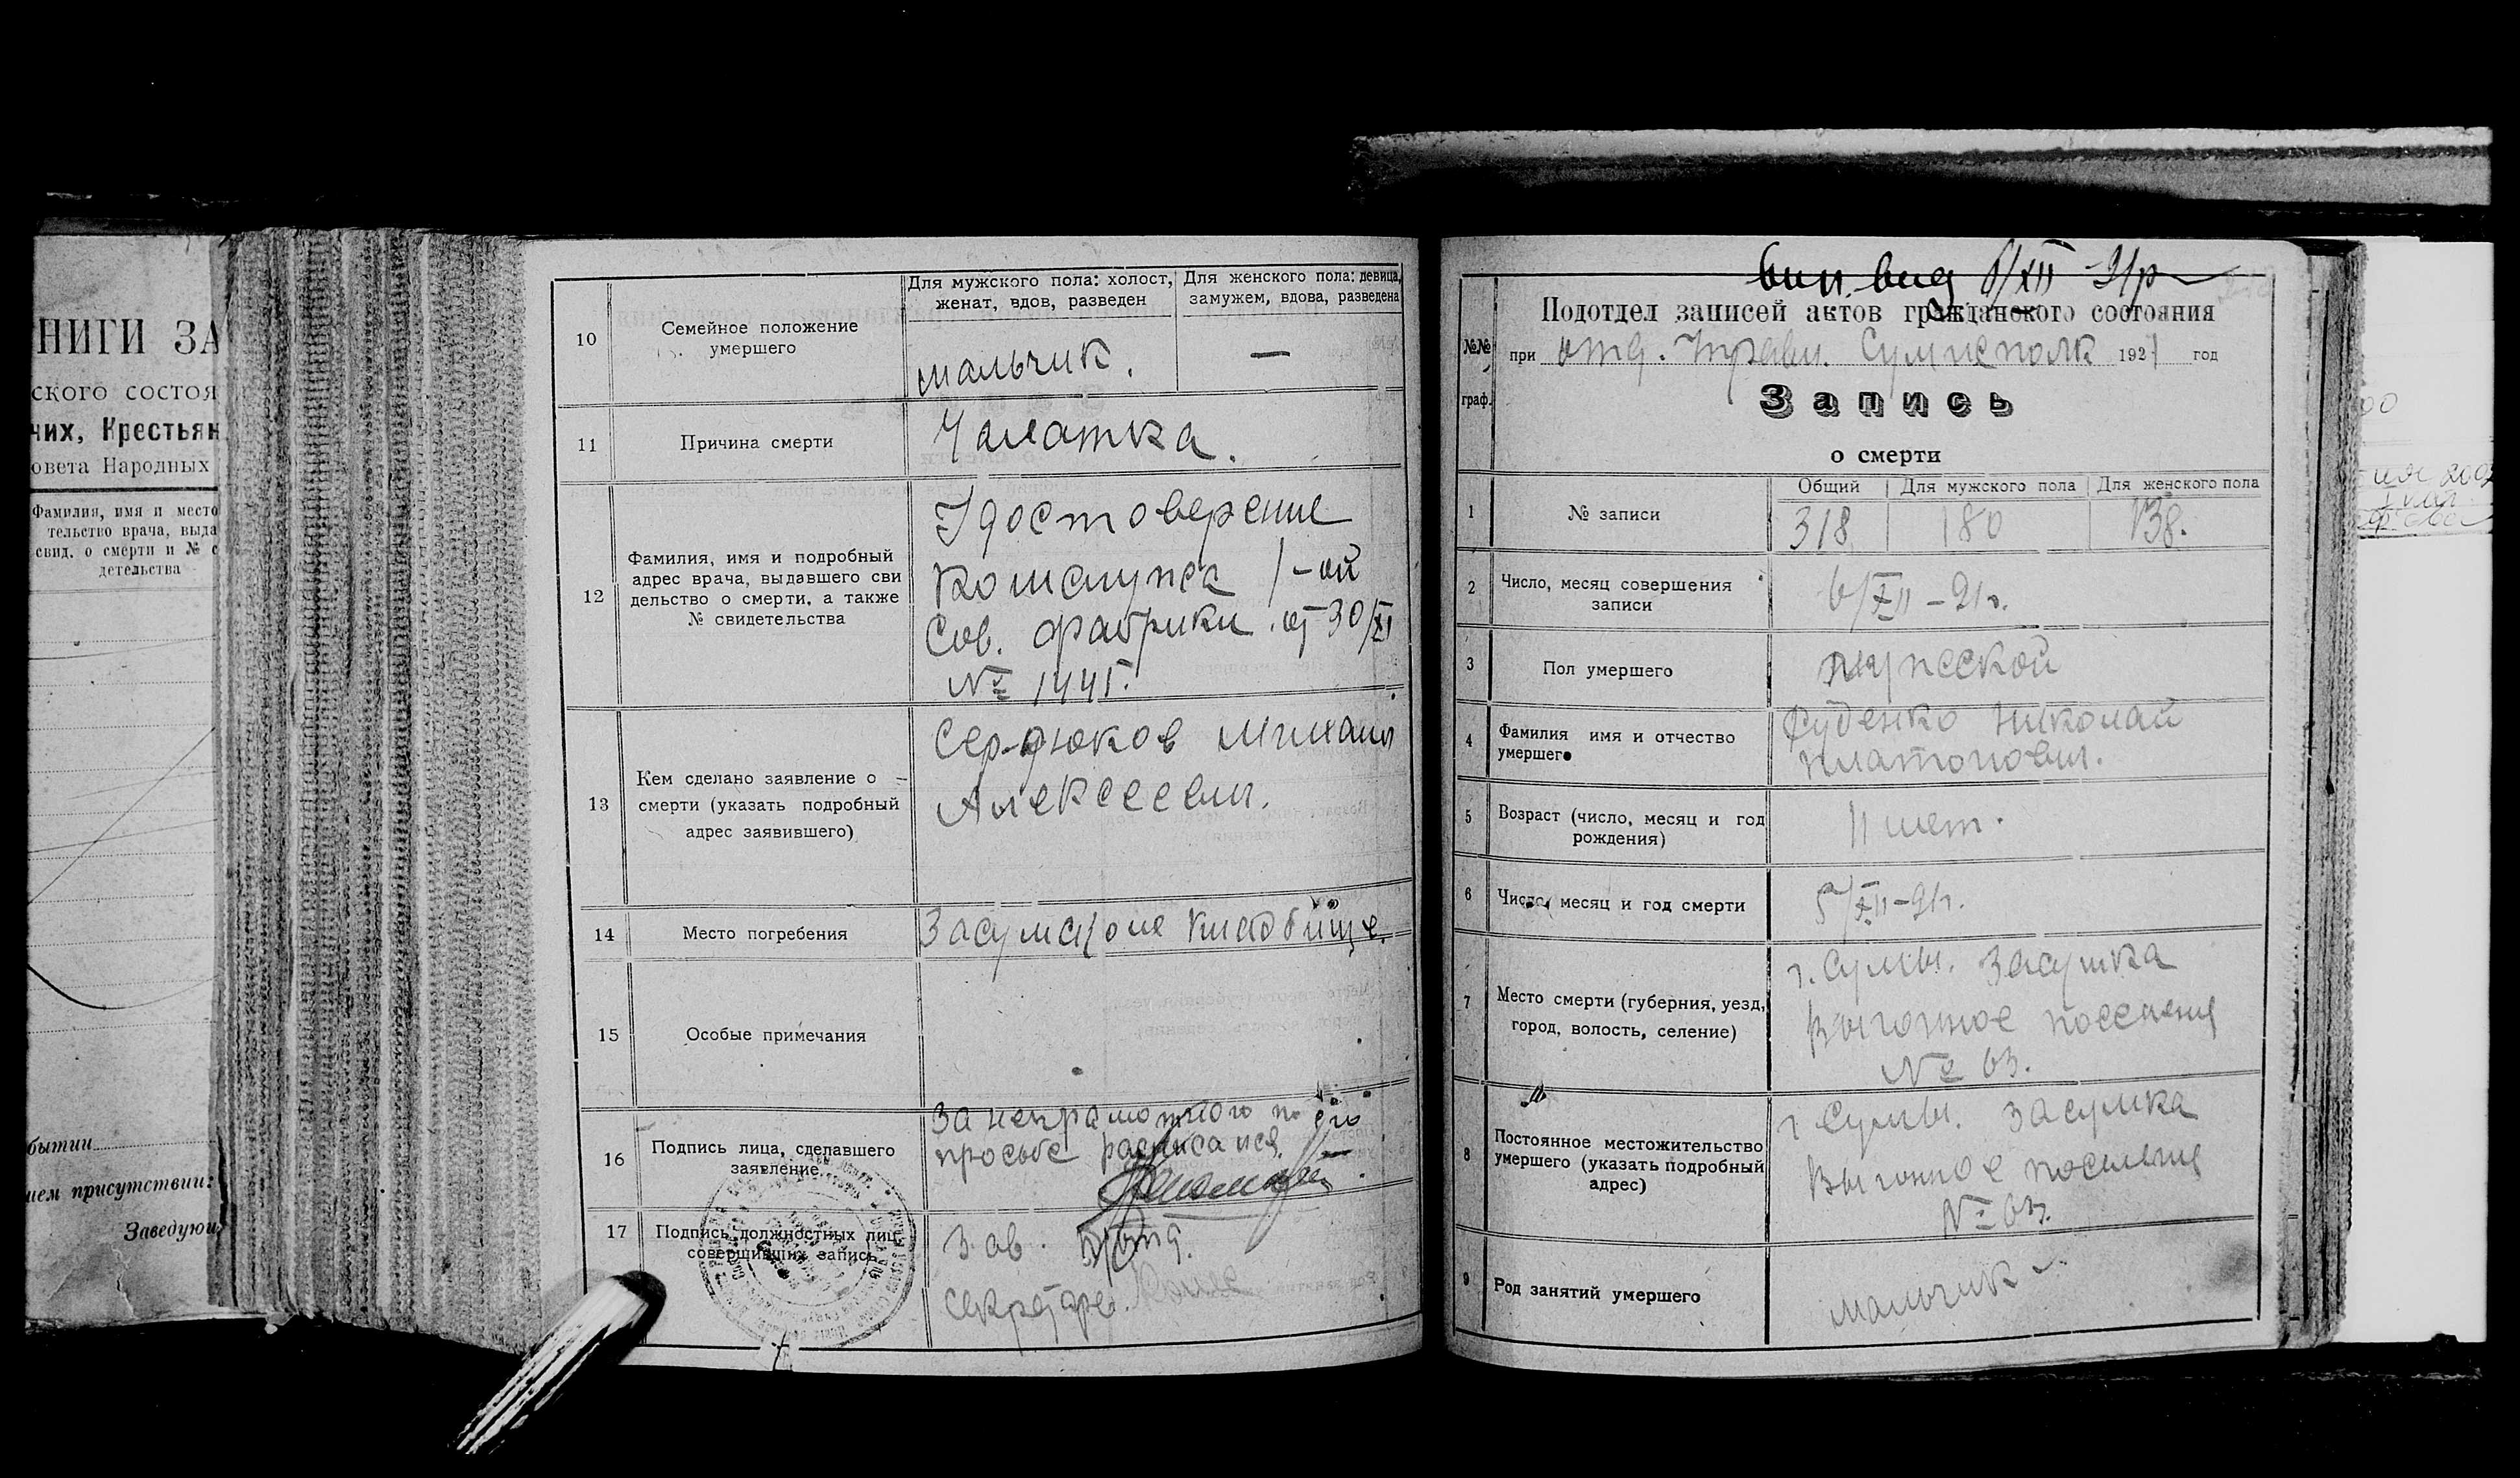 НИГИ ЗА
ского состоя
чих, Крестьян
овета Народных
Фамилия, имя и место
тельство врача, выда
свид. о смерти и № с
детельства
бытии
ием присутствии:
Заведую
10
Семейное положение
умершего
Для мужского пола: холост,
женат, вдов, разведен
Для женского пола: девица,
замужем, вдова, разведена
мальчик. —
11
Причина смерти
Чахотка.
12
Фамилия, имя и подробный
адрес врача, выдавшего сви
дельство о смерти, а также
№ свидетельства
Удостоверение
1-ой
Сов. фабрики от 30/XI
№ 1445.
13
Кем сделано заявление о
смерти (указать подробный
адрес заявившего)
Сердюков Михаил
Алексеевич.
14
Место погребения
Засумское кладбище.
15
Особые примечания
16
Подпись лица, сделавшего
заявление.
За неграмотного по его
просьбе расписался
17
Подпись должностных лиц
совершивших запись
Зав. п/отд.
Секретарь.
вид 6/XII-21г
№№
граф.
Подотдел записей актов гражданского состояния
при отд. Управ. 1921 год
Запись
о смерти
1
№ записи
Общий Для мужского пола Для женского пола
318 180 138.
2
Число, месяц совершения
записи
6/XII-21г.
3
Пол умершего
мужской
4
Фамилия имя и отчество
умершего
Руденко Николай
Платонович.
5
Возраст (число, месяц и год
рождения)
11 лет.
6
Число, месяц и год смерти
5/XII-21г.
7
Место смерти (губерния, уезд,
город, волость, селение)
г. Сумы. Засумка
Выгонное поселение
№ 63.
8
Постоянное местожительство
умершего (указать подробный
адрес)
г Сумы. Засумка
Выгонное поселение
№ 63.
9
Род занятий умершего
мальчик